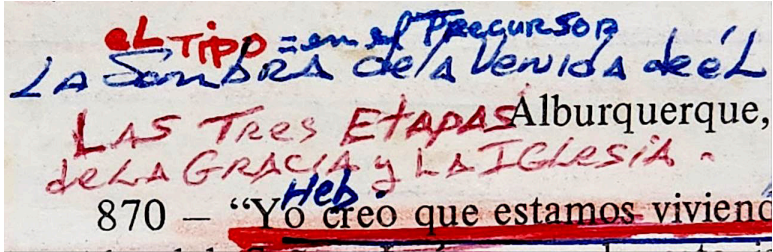 eL TIPO = en el PRecuRSOR
LA SomBRA de la Venida de éL
LAS TRes ETAPAS Alburquerque,
de LA GRACIA y LA IGlesia.
Heb.
870 – “Yo creo que estamos viviend